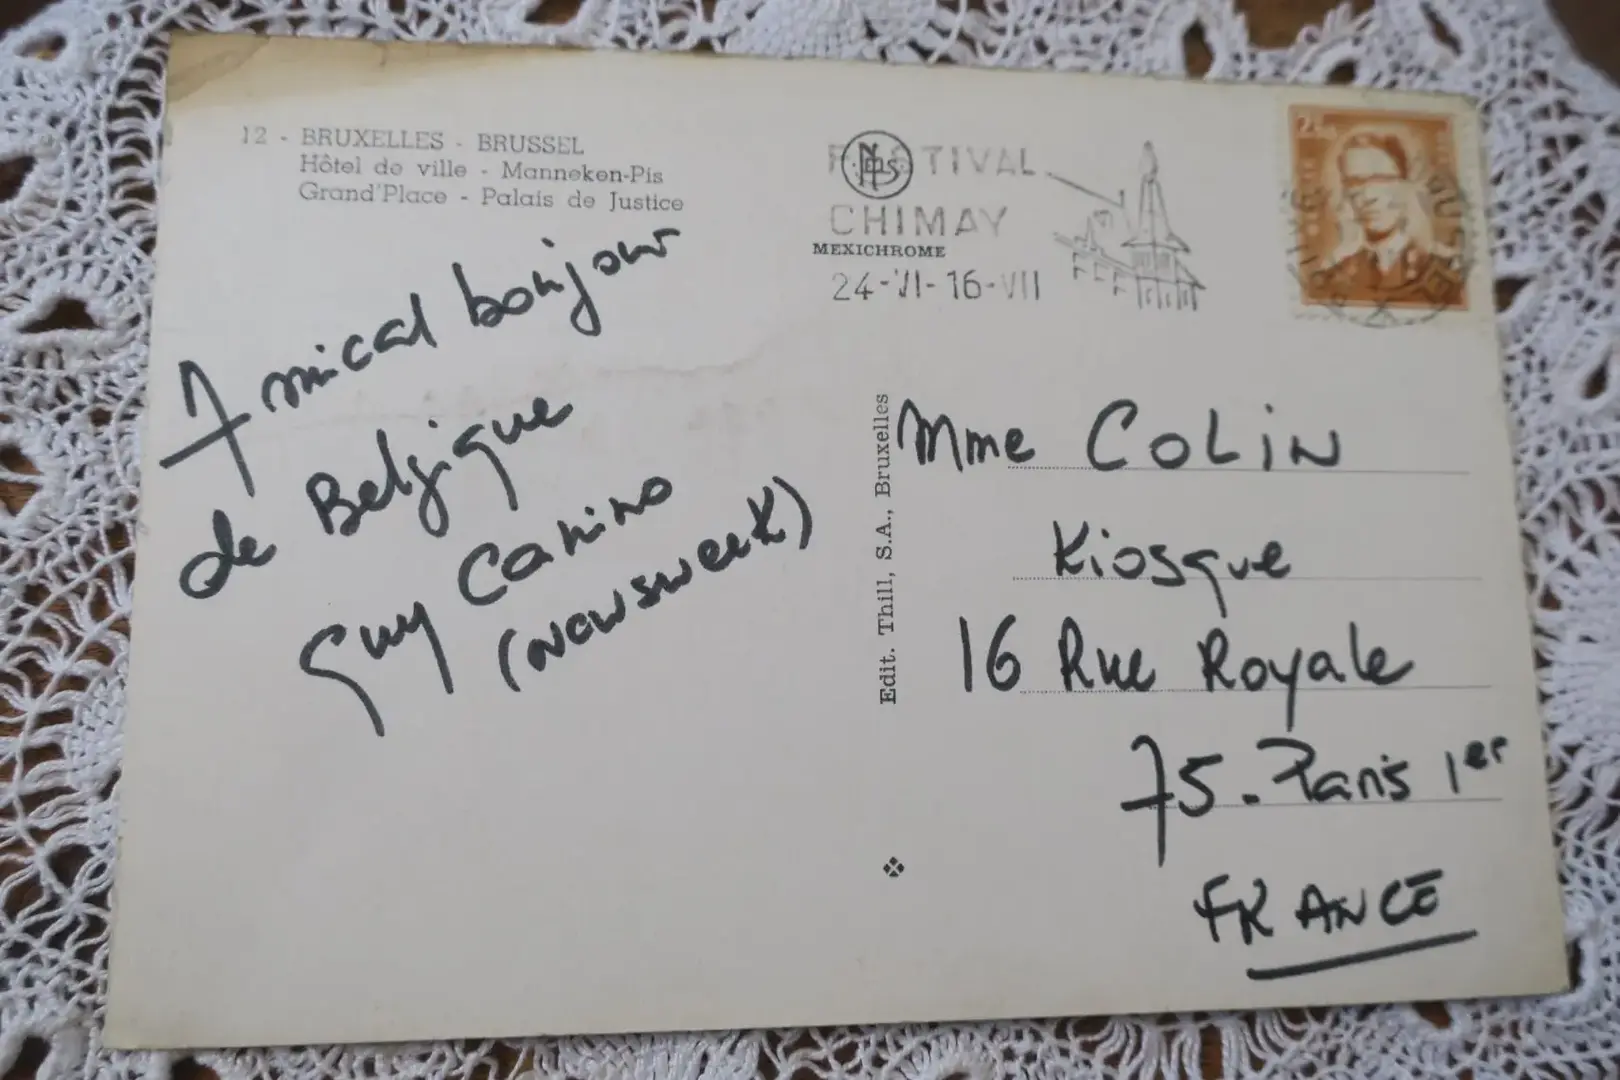 12 - BRUXELLES - BRUSSEL
Hôtel de ville - Manneken-Pis
Grand'Place - Palais de Justice
FESTIVAL
CHIMAY
MEXICHROME
24-VI-16-VII
Amical bonjour
de Belgique
Guy Canino
(Newsweek)
Edit. Thill, S.A., Bruxelles
Mme COLIN
Kiosque
16 Rue Royale
75. Paris 1er
FRANCE